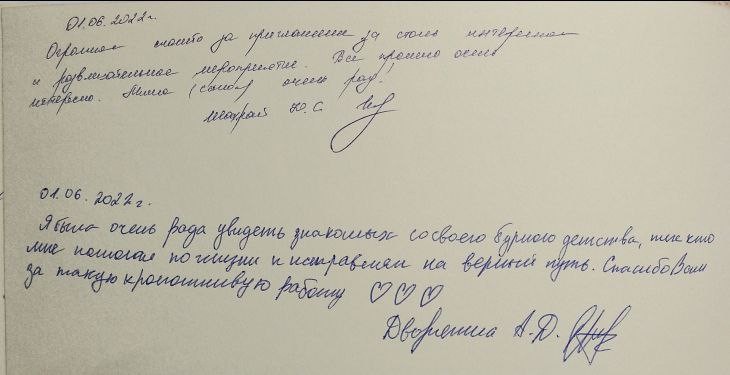 01.06.2022г.
Огромное спасибо за приглашение за столь интересное
и развлекательное мероприятие. Все прошло очень
интересно. очень рад!
Ю.С.
01.06.2022г.
Я была очень рада увидеть знакомых со своего бурного детства, тех кто
мне помогал по жизни и исправлял на верный путь. Спасибо Вам
за такую кропотливую работу ♡♡♡
А.Д.